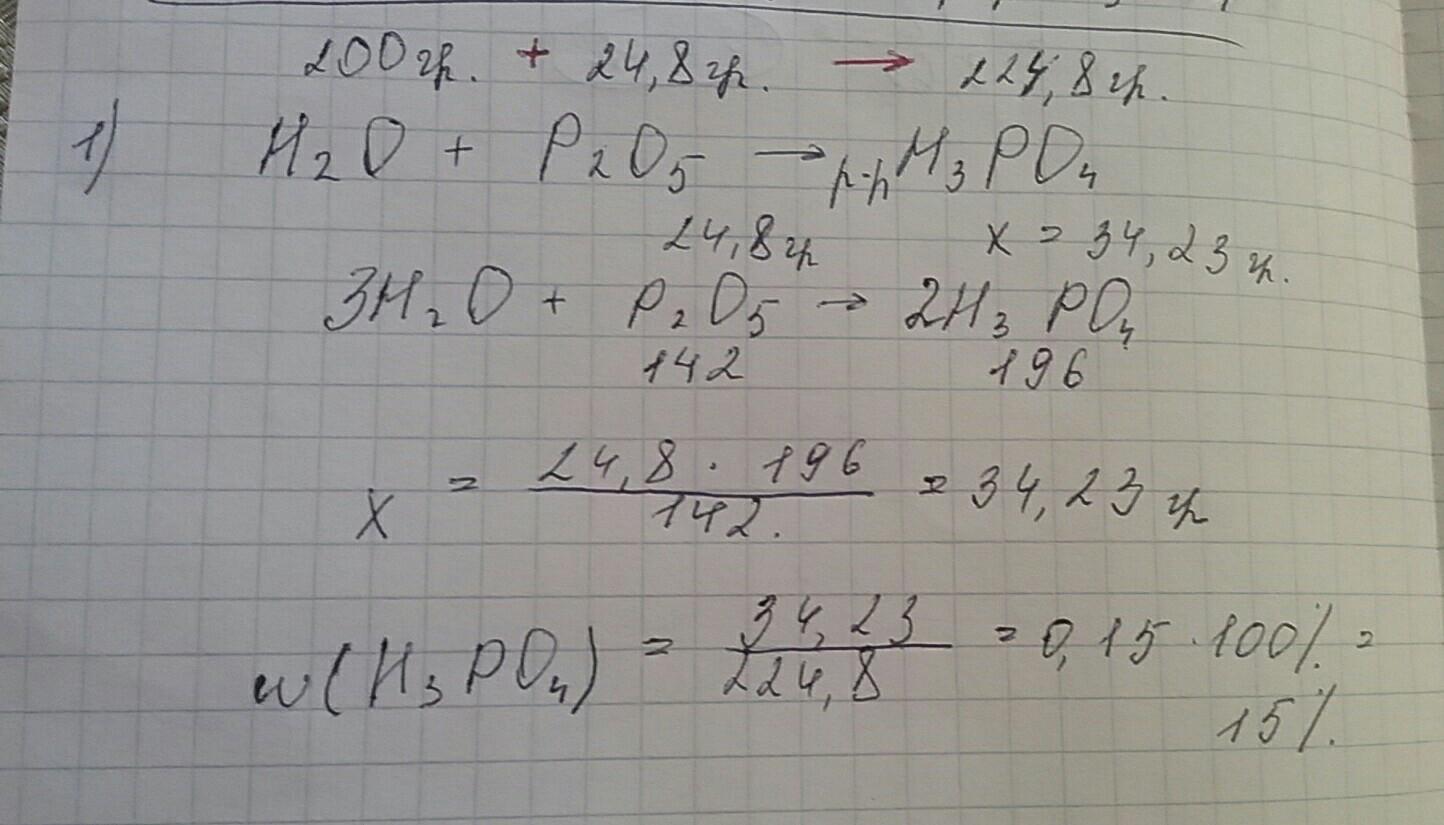 200 гр. + 24,8 гр. → 224,8 гр.
1) H₂O + P₂O₅ → р-р H₃PO₄
24,8 гр x = 34,23 гр.
3H₂O + P₂O₅ → 2H₃PO₄
142 196
x = 24,8 · 196 / 142. = 34,23 гр
w(H₃PO₄) = 34,23 / 224,8 = 0,15 · 100% =
15%.